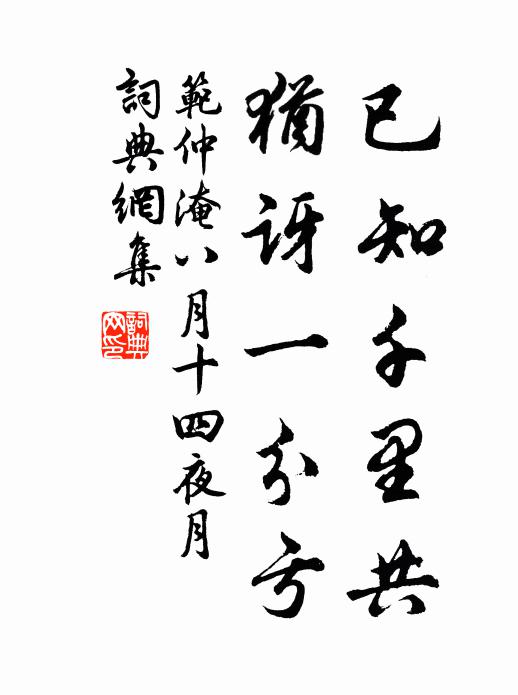 已知千里共
猶訝一分亏
範仲淹八月十四夜月
詞典網集
詞典网印